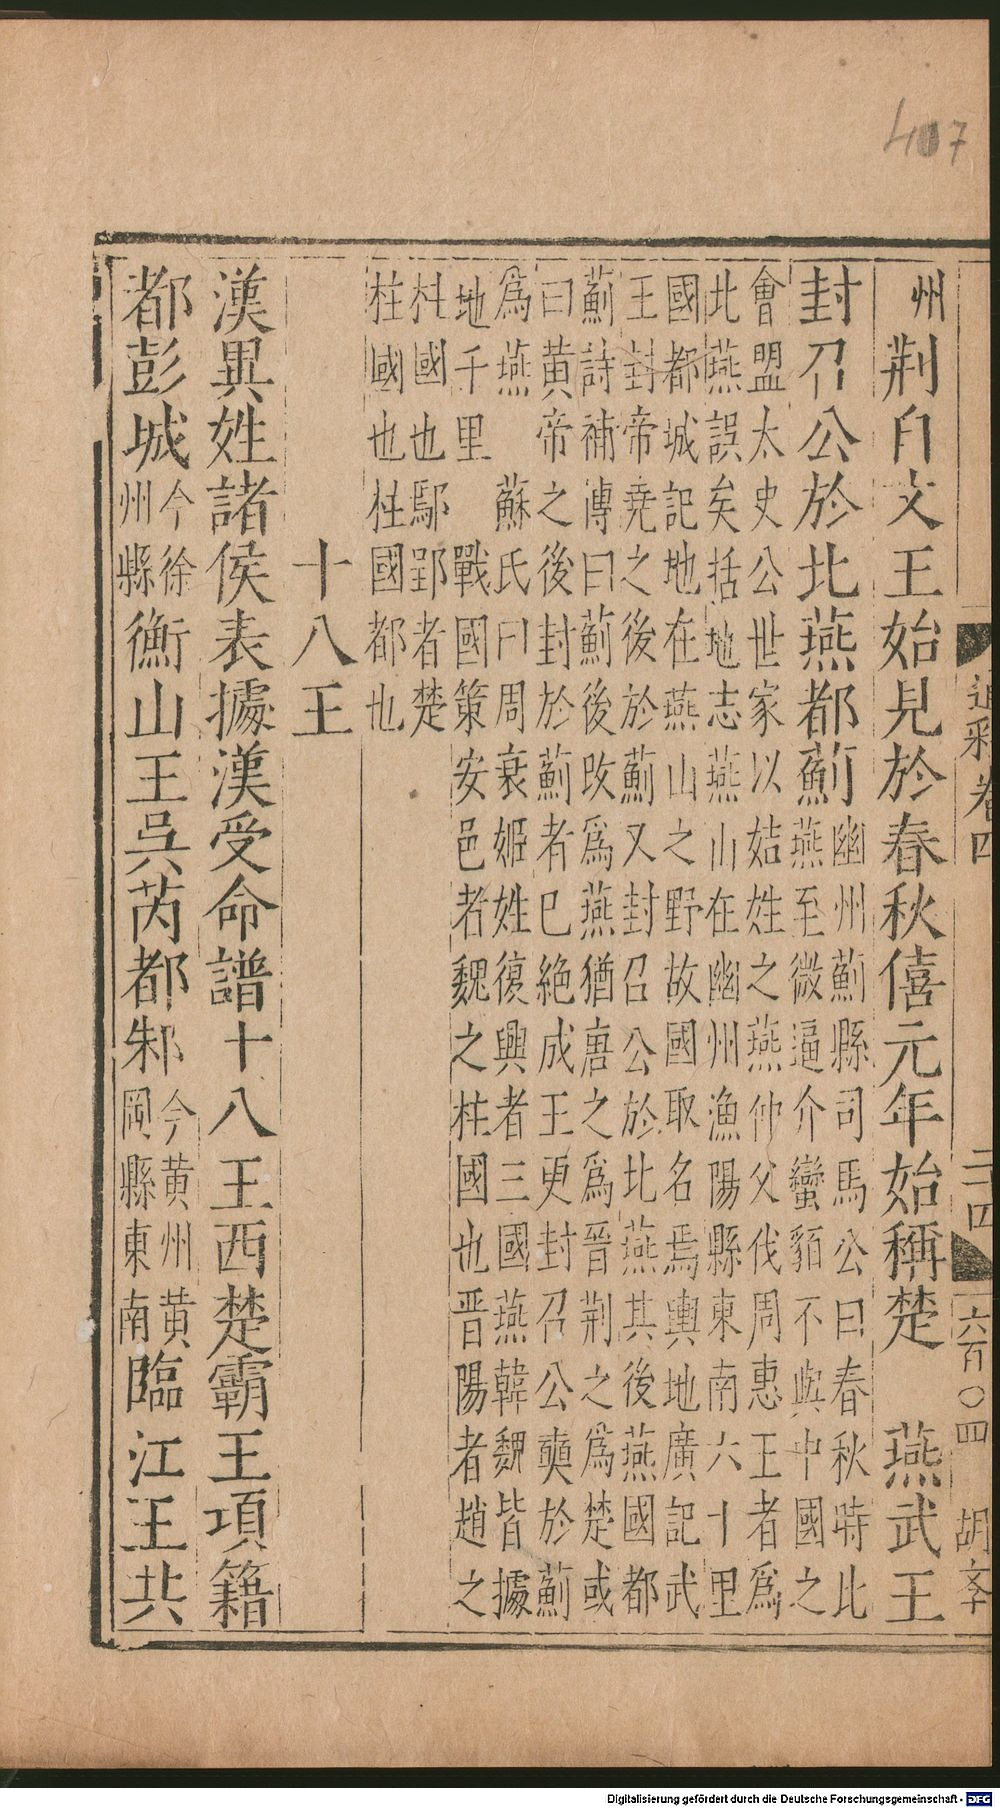 407
州荆自文王始見於春秋僖元年始稱楚　燕武王
封召公於北燕都薊幽州薊縣司馬公曰春秋時北
燕至微逼介蠻貊不與中國之
會盟太史公世家以姞姓之燕仲父伐周惠王者爲
北燕誤矣括地志燕山在幽州漁陽縣東南六十里
國都城記地在燕山之野故國取名焉輿地廣記武
王封帝堯之後於薊又封召公於北燕其後燕國都
薊詩補傳曰薊後改爲燕猶唐之爲晉荆之爲楚或
曰黄帝之後封於薊者已絶成王更封召公奭於薊
爲燕　蘇氏曰周衰姬姓復興者三國燕韓魏皆據
地千里　戰國策安邑者魏之柱國也晋陽者趙之
柱國也鄢郢者楚
柱國也柱國都也
十八王
漢異姓諸侯表據漢受命譜十八王西楚霸王項籍
都彭城今徐
州縣衡山王吳芮都邾今黄州黄
岡縣東南臨江王共
通釋卷四
二四
六百〇四
胡文
Digitalisierung gefördert durch die Deutsche Forschungsgemeinschaft - DFG